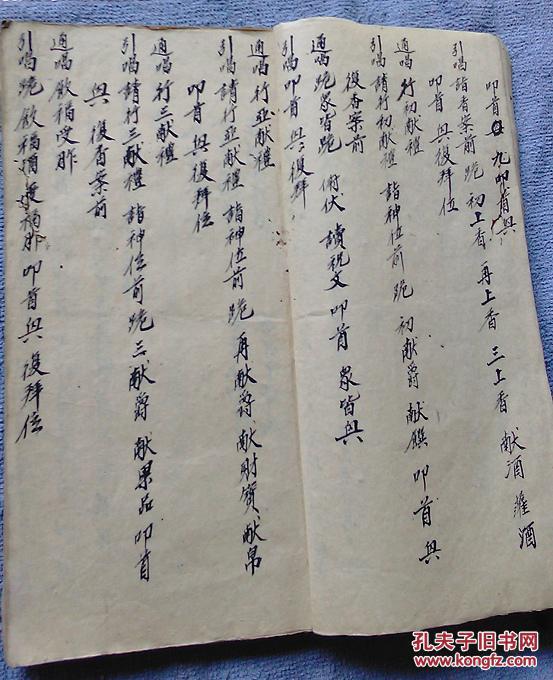 叩首 九叩首興
引唱詣香案前 跪 初上香 再上香 三上香 献酒 灌酒
叩首 興 復拜位
通唱 行初献禮
引唱請行初献禮 詣神位前 跪 初献爵 献饌 叩首 興
復香案前
通唱 跪 衆皆跪 俯伏 讀祝文 叩首 衆皆興
引唱 叩首 興 復拜
通唱 行亚献禮
引唱請行亚献禮 詣神位前 跪 再献爵 献財寳 献帛
叩首 興 復拜位
通唱 行三献禮
引唱請行三献禮 詣神位前 跪 三献爵 献果品 叩首
興 復香案前
通唱 飲福受胙
引唱 跪 飲福酒 受福胙 叩首 興 復拜位
孔夫子旧书网
www.kongfz.com